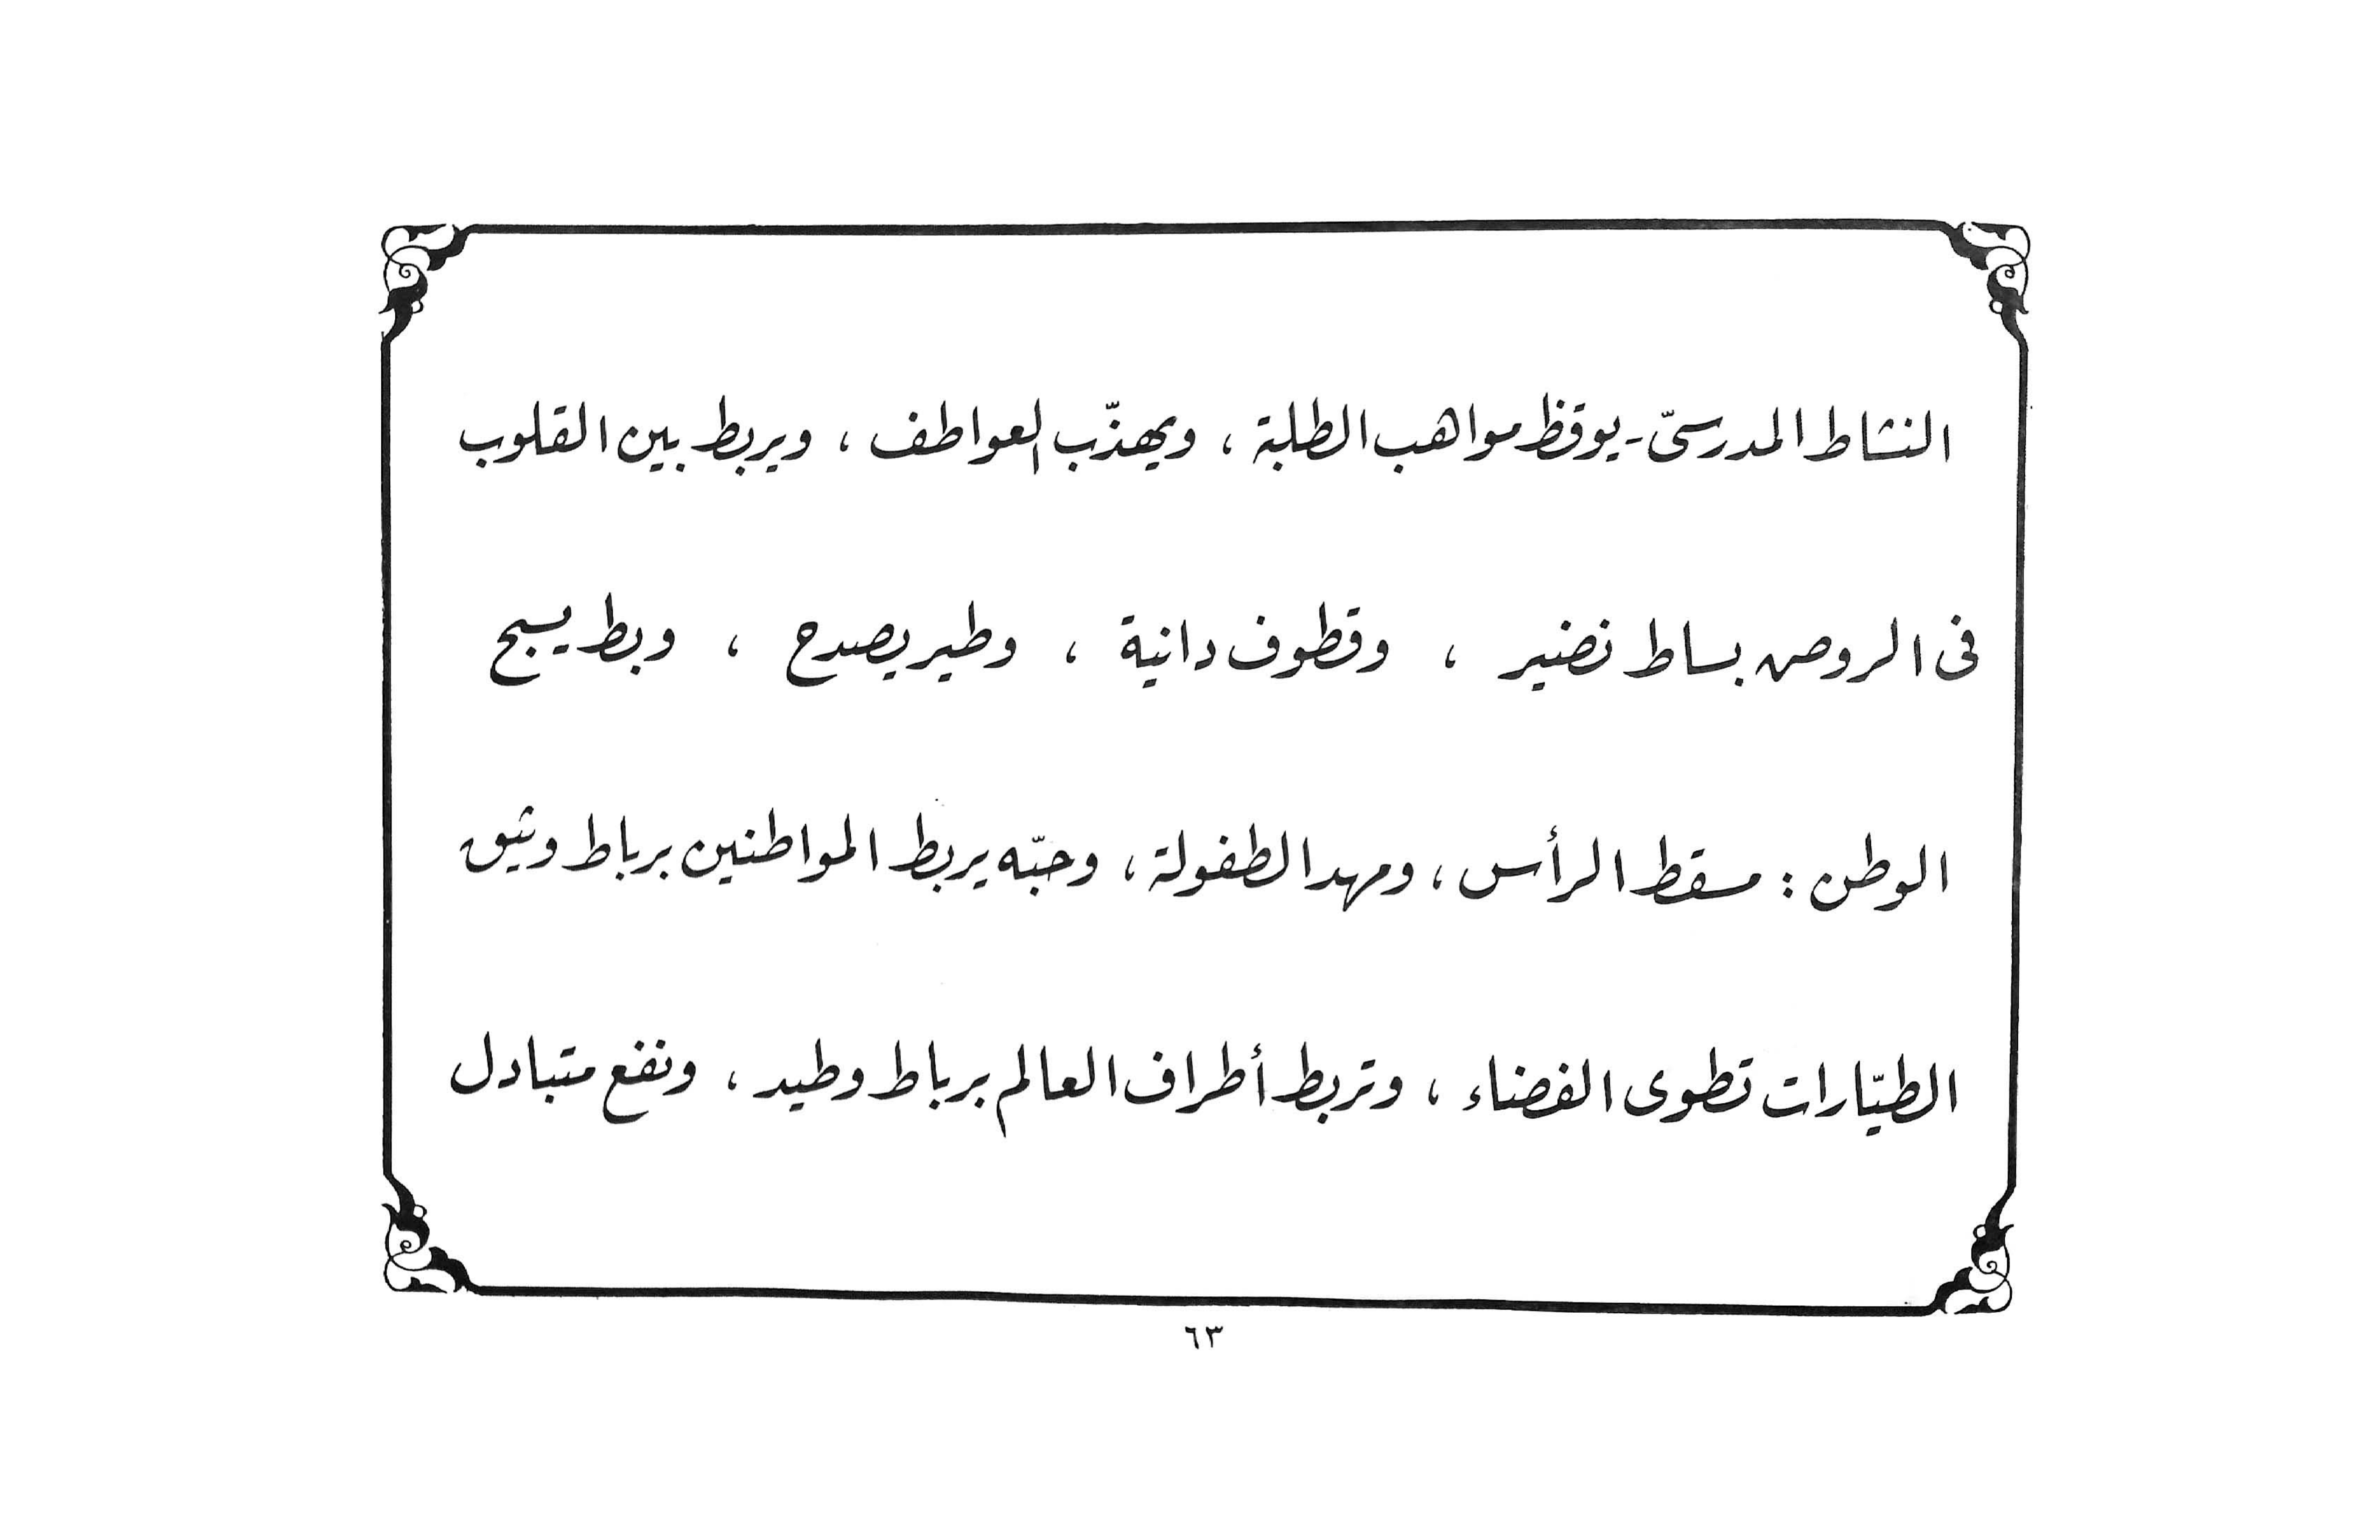 النشاط المدرسىّ - يوقظ مواهب الطلبة ، ويهذّب العواطف ، ويربط بين القلوب
فى الروض بساط نضير ، وقطوف دانية ، وطير يصدح ، وبط يسبح
الوطن : مسقط الرأس ، ومهد الطفولة ، وحبّه يربط المواطنين برباط وثيق
الطيّارات تطوى الفضاء ، وتربط أطراف العالم برباط وطيد ، ونفع متبادل
٦٣